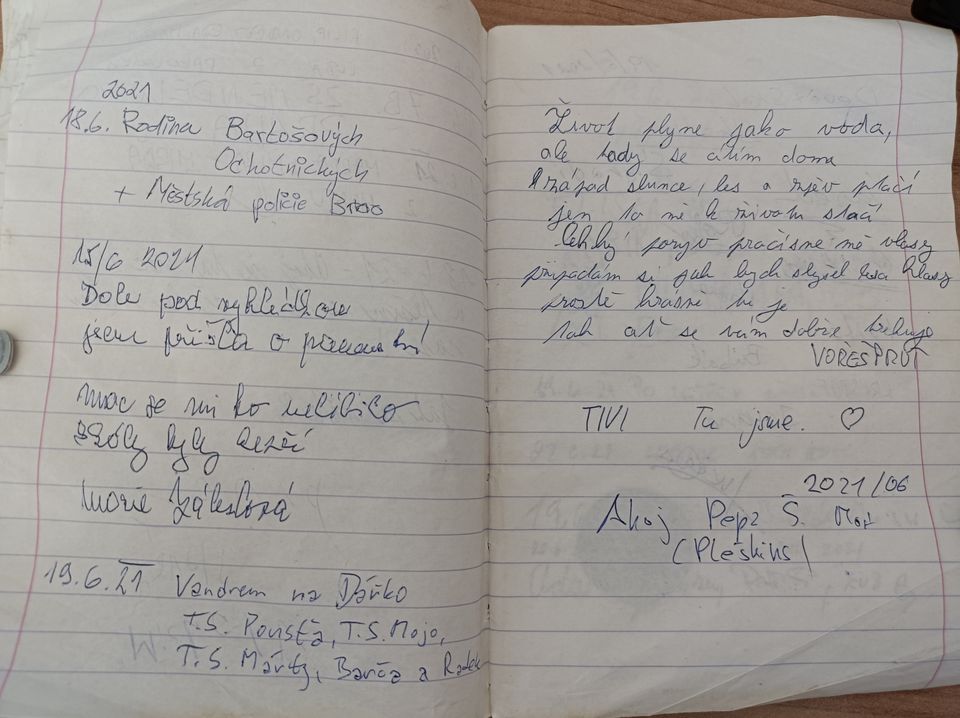 2021
18.6. Rodina Bartošových
Ochotnických
+ Městská policie Brno
15/6 2021
Dole pod vyhlídkou
jsem přišla o panenství
moc se mi to nelíbilo
Marie
19.6.21 Vandrem na Dářko
T.S. Pousťa, T.S. Mojo,
T.S. Märtz, Barča a Radek
Život plyne jako voda,
ale tady se cítím doma
západ slunce, les a zpěv ptačí
jen to mě k životu stačí
Lehký poryv pročísne mé vlasy
připadám si jak bych slyšel lesa hlasy
prostě krásně tu je
tak ať se vám dobře trekuje
VOŘEŠPRUT
TIVI Tu jsme. ♡
2021/06
Ahoj Pepz Š.
(Pleskins)